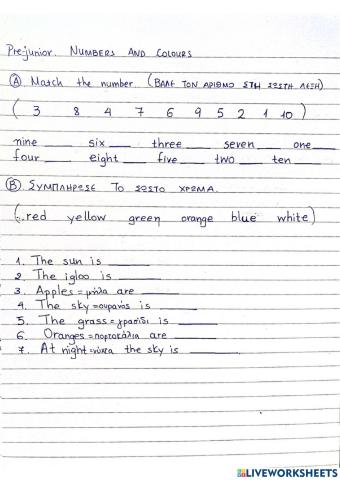 Pre-junior. NUMBERS AND COLOURS
Ⓐ Match the number (ΒΑΛΕ ΤΟΝ ΑΡΙΘΜΟ ΣΤΗ ΣΩΣΤΗ ΛΕΞΗ)
( 3 8 4 7 6 9 5 2 1 10 )
nine ____ six ____ three ____ seven ____ one ____
four ____ eight ____ five ____ two ____ ten ____
Ⓑ ΣΥΜΠΛΗΡΩΣΕ ΤΟ ΣΩΣΤΟ ΧΡΩΜΑ.
(..red yellow green orange blue white)
1. The sun is ______
2. The igloo is ______
3. Apples=μήλα are ______
4. The sky=ουρανός is ______
5. The grass=γρασίδι is ______
6. Oranges=πορτοκάλια are ______
7. At night=νύχτα the sky is ______
LIVEWORKSHEETS